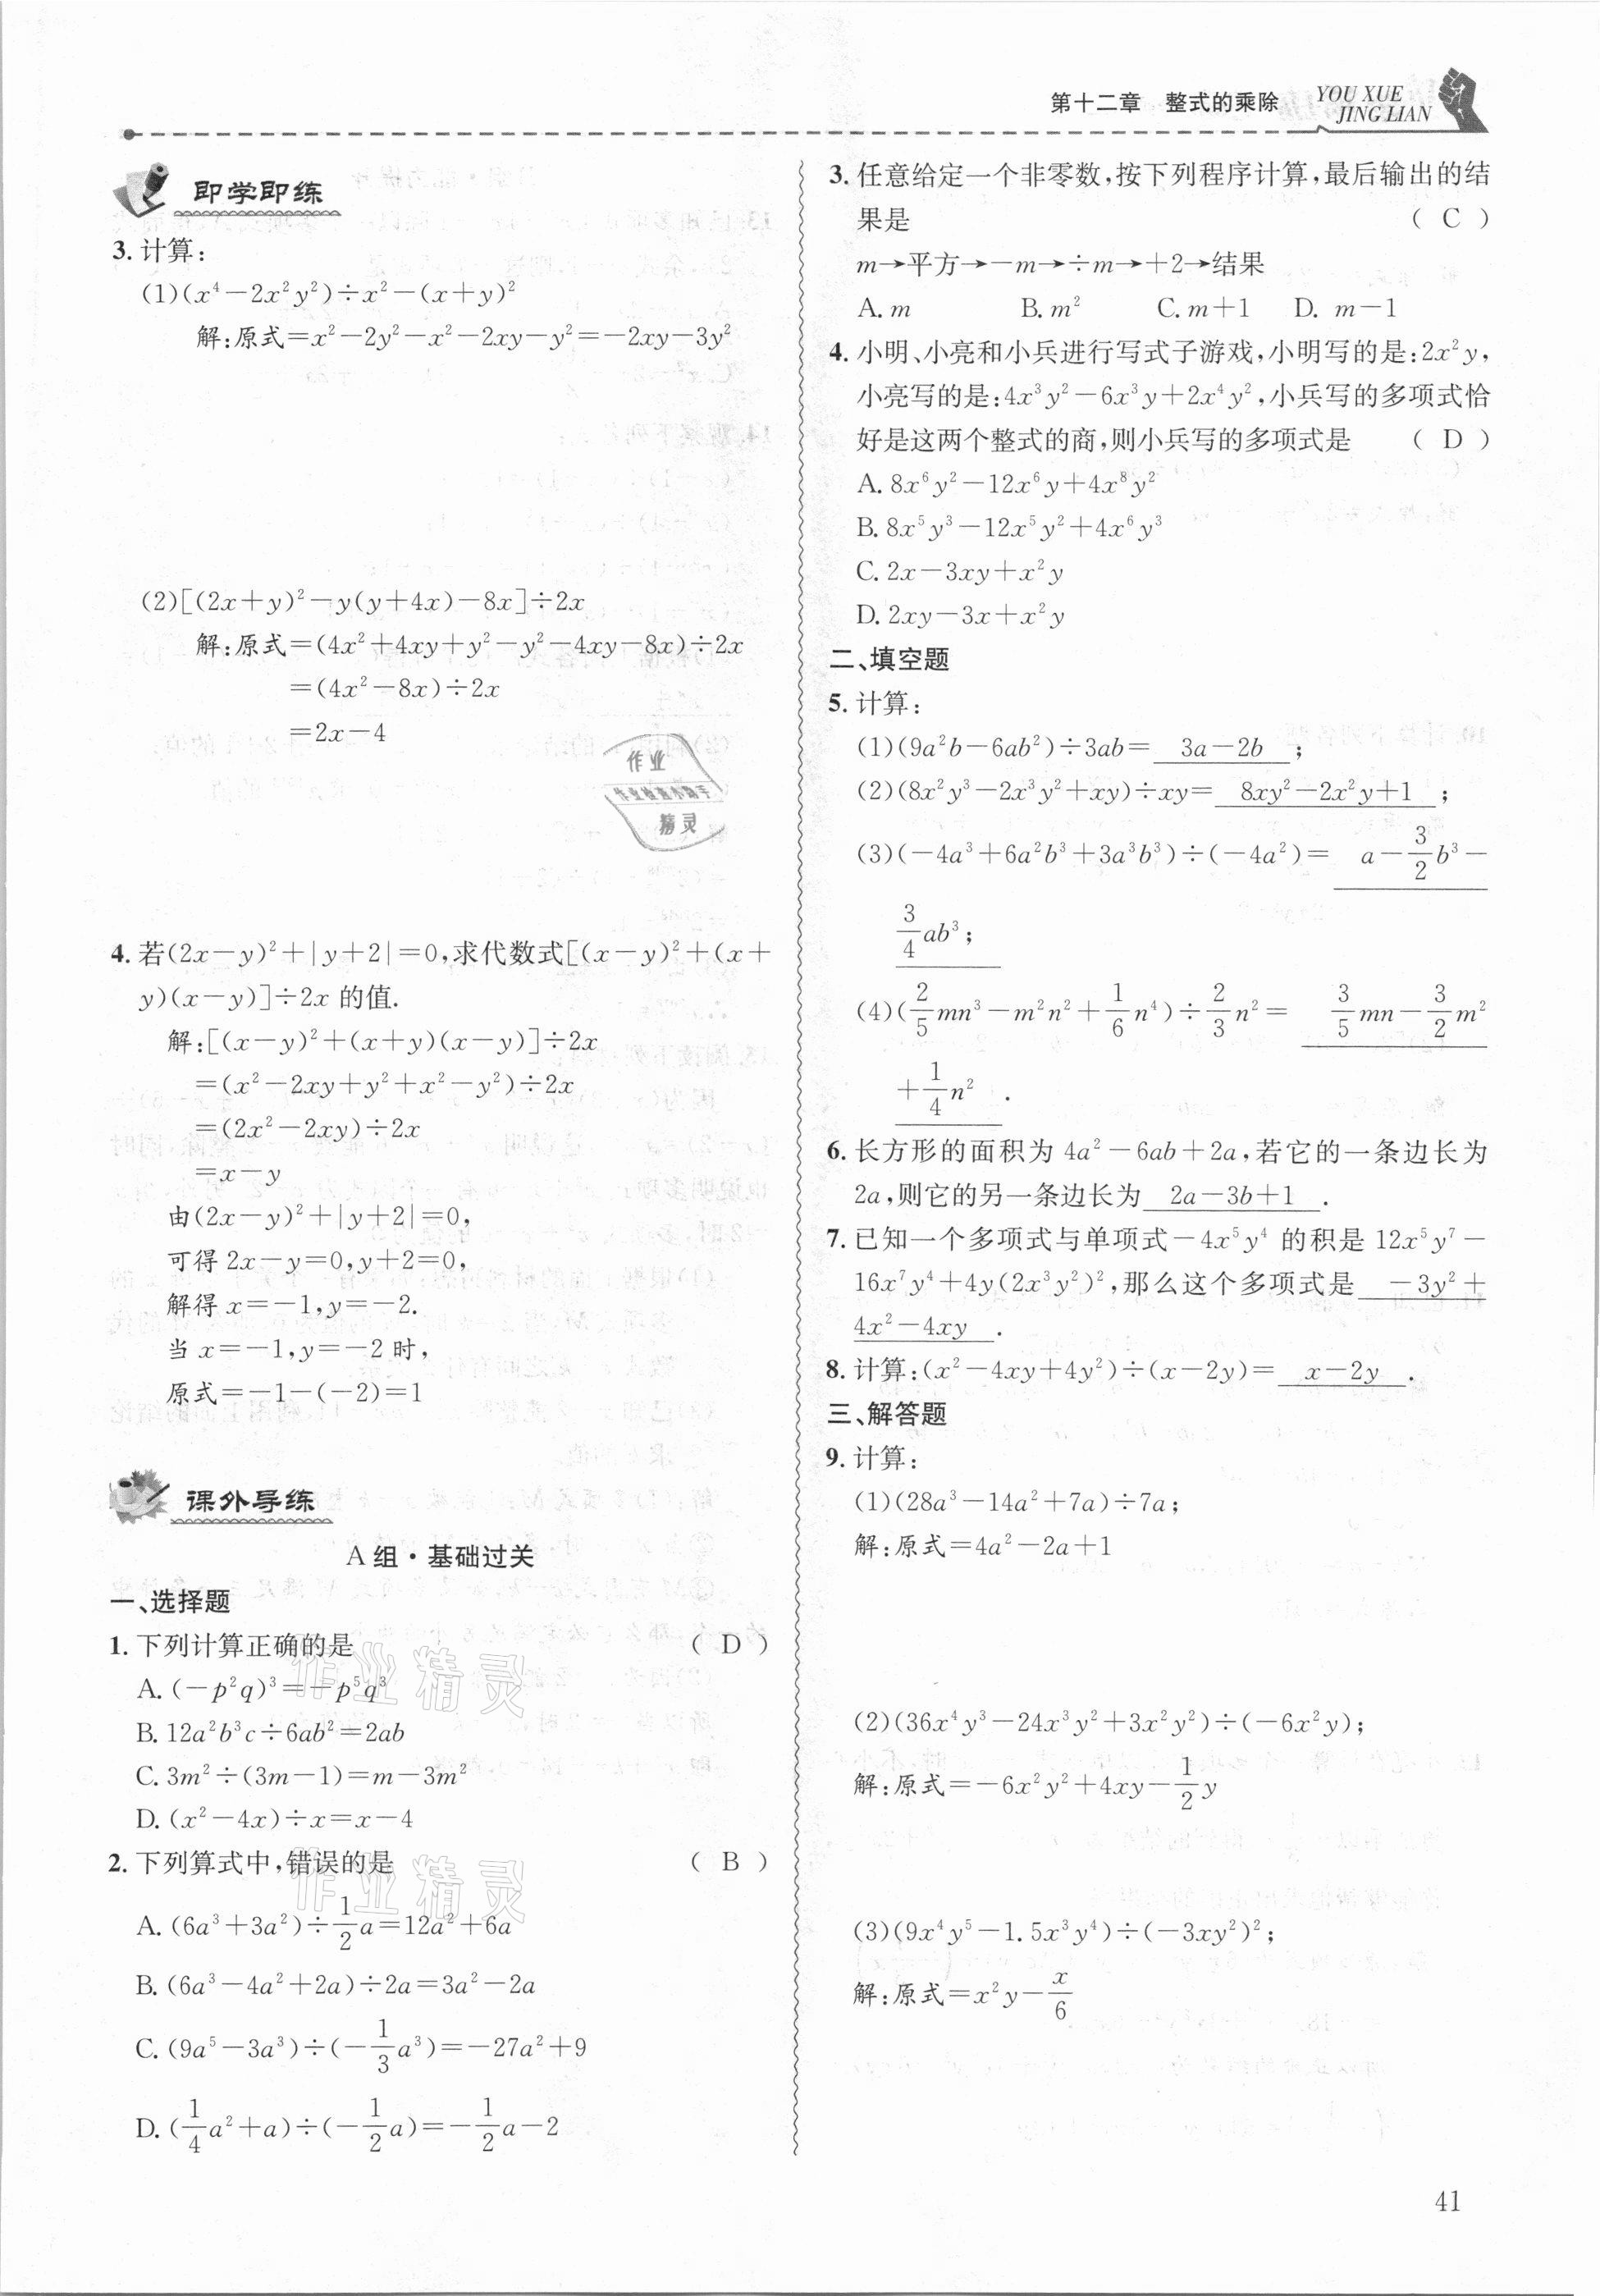 第十二章 整式的乘除
YOU XUE
JING LIAN
即学即练
3. 计算:
(1)(x⁴－2x²y²)÷x²－(x＋y)²
解:原式＝x²－2y²－x²－2xy－y²＝－2xy－3y²
(2)[(2x＋y)²－y(y＋4x)－8x]÷2x
解:原式＝(4x²＋4xy＋y²－y²－4xy－8x)÷2x
＝(4x²－8x)÷2x
＝2x－4
作业
作业检查小助手
精灵
4. 若(2x－y)²＋|y＋2|＝0,求代数式[(x－y)²＋(x＋
y)(x－y)]÷2x 的值.
解:[(x－y)²＋(x＋y)(x－y)]÷2x
＝(x²－2xy＋y²＋x²－y²)÷2x
＝(2x²－2xy)÷2x
＝x－y
由(2x－y)²＋|y＋2|＝0,
可得 2x－y＝0,y＋2＝0,
解得 x＝－1,y＝－2.
当 x＝－1,y＝－2 时,
原式＝－1－(－2)＝1
课外导练
A 组·基础过关
一、选择题
1. 下列计算正确的是 ( D )
A. (－p²q)³＝－p⁵q³
B. 12a²b³c÷6ab²＝2ab
C. 3m²÷(3m－1)＝m－3m²
D. (x²－4x)÷x＝x－4
作业精灵
2. 下列算式中,错误的是 ( B )
A. (6a³＋3a²)÷1/2a＝12a²＋6a
B. (6a³－4a²＋2a)÷2a＝3a²－2a
C. (9a⁵－3a³)÷(－1/3a³)＝－27a²＋9
D. (1/4a²＋a)÷(－1/2a)＝－1/2a－2
作业精灵
3. 任意给定一个非零数,按下列程序计算,最后输出的结
果是 ( C )
m→平方→－m→÷m→＋2→结果
A. m B. m² C. m＋1 D. m－1
4. 小明、小亮和小兵进行写式子游戏,小明写的是:2x²y,
小亮写的是:4x³y²－6x³y＋2x⁴y²,小兵写的多项式恰
好是这两个整式的商,则小兵写的多项式是 ( D )
A. 8x⁶y²－12x⁶y＋4x⁸y²
B. 8x⁵y³－12x⁵y²＋4x⁶y³
C. 2x－3xy＋x²y
D. 2xy－3x＋x²y
二、填空题
5. 计算:
(1)(9a²b－6ab²)÷3ab＝ 3a－2b ;
(2)(8x²y³－2x³y²＋xy)÷xy＝ 8xy²－2x²y＋1 ;
(3)(－4a³＋6a²b³＋3a³b³)÷(－4a²)＝ a－3/2b³－
3/4ab³;
(4)(2/5mn³－m²n²＋1/6n⁴)÷2/3n²＝ 3/5mn－3/2m²
＋1/4n² .
6. 长方形的面积为 4a²－6ab＋2a,若它的一条边长为
2a,则它的另一条边长为 2a－3b＋1 .
7. 已知一个多项式与单项式－4x⁵y⁴ 的积是 12x⁵y⁷－
16x⁷y⁴＋4y(2x³y²)²,那么这个多项式是 －3y²＋
4x²－4xy .
8. 计算:(x²－4xy＋4y²)÷(x－2y)＝ x－2y .
三、解答题
9. 计算:
(1)(28a³－14a²＋7a)÷7a;
解:原式＝4a²－2a＋1
(2)(36x⁴y³－24x³y²＋3x²y²)÷(－6x²y);
解:原式＝－6x²y²＋4xy－1/2y
(3)(9x⁴y⁵－1.5x³y⁴)÷(－3xy²)²;
解:原式＝x²y－x/6
41